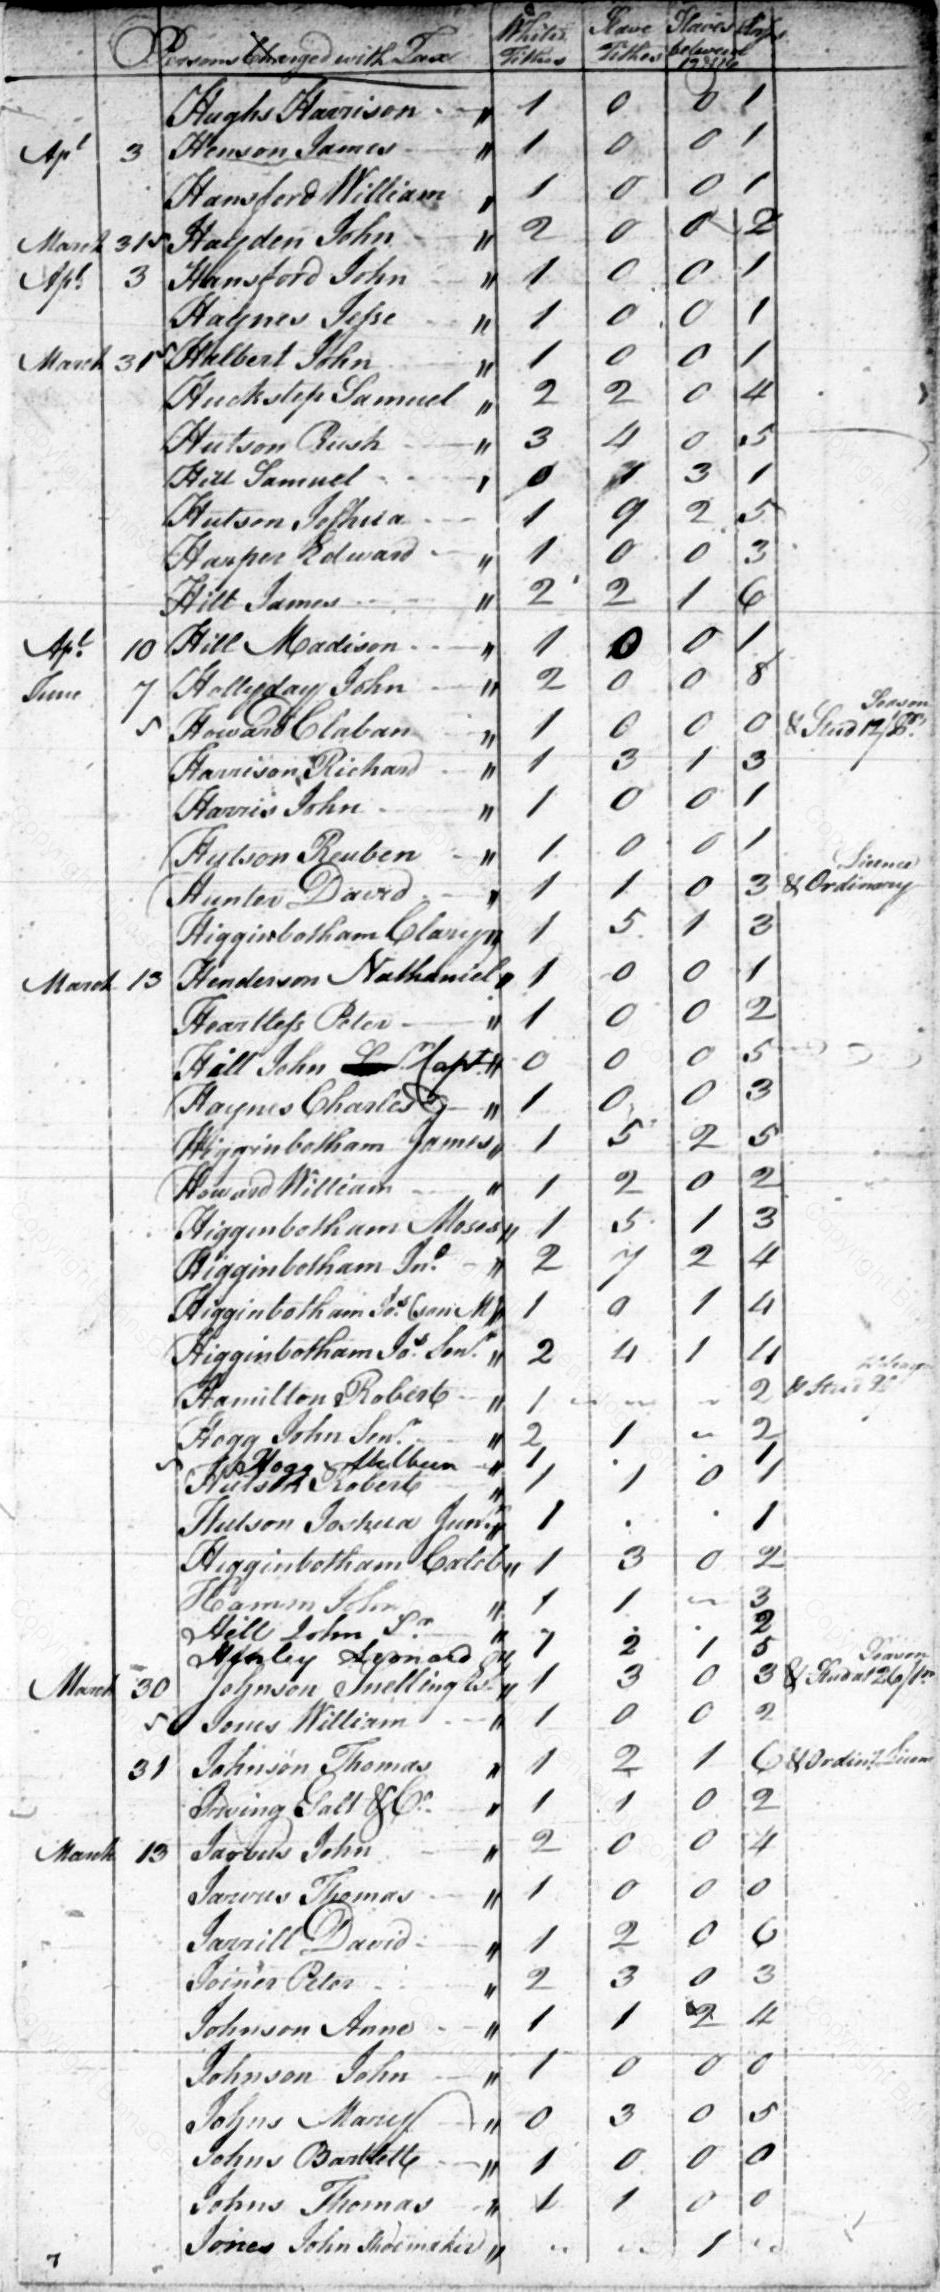 Persons Charged with Tax White Tithes Slave Tithes Slaves between 12 & 16
Hughs Harrison " 1 0 0 1
Apl 3 Henson James " 1 0 0 1
Hansford William " 1 0 0 1
March 31 s Hayden John " 2 0 0 2
Apl 3 Hansford John " 1 0 0 1
Haynes Jesse " 1 0 0 1
March 31 s Halbert John " 1 0 0 1
Huckstep Samuel " 2 2 0 4
Hutson Rush " 3 4 0 5
Hill Samuel " 0 1 3 1
Hutson Joshua 1 9 2 5
Harper Edward " 1 0 0 3
Hilt James " 2 2 1 6
Apl 10 Hill Madison " 1 0 0 1
June 7 Hollyday John " 2 0 0 8
s Howard Claban " 1 0 0 0 & Stud Season
Harrison Richard " 1 3 1 3
Harris John " 1 0 0 1
Hutson Reuben " 1 0 0 1
Hunter David " 1 1 0 3 & Ordinary Licence
Higginbotham 1 5 1 3
March 13 Henderson Nathaniel " 1 0 0 1
Heartless Peter " 1 0 0 2
Hill John Capt " 0 0 0 5
Haynes Charles " 1 0 0 3
Higginbotham James " 1 5 2 5
Howard William " 1 2 0 2
Higginbotham Moses " 1 5 1 3
Higginbotham Jno " 2 7 2 4
Higginbotham Jos (son M) " 1 0 1 4
Higginbotham Jos Senr " 2 4 1 4
Hamilton Robert " 1 ~ ~ ~ 2 & Stud
Hogg John Senr " 2 1 ~ 2
s Hogg Milbun " 1 . . 1
Hutson Robert " 1 1 0 1
Hutson Joshua Junr " 1 . . 1
Higginbotham Caleb " 1 3 0 2
Hamm John " 1 1 ~ 3
Hill John Sr " . . 2
Henley Leonard " 1 2 1 5
March 30 Johnson Snelling " 1 3 0 3 & Stud at Season
s Jones William " 1 0 0 2
31 Johnson Thomas " 1 2 1 6 & Ordiny Licence
Irving Galt & Co " 1 1 0 2
March 13 Jarvus John " 2 0 0 4
Jarvus Thomas " 1 0 0 0
Jarrill David " 1 2 0 6
Joiner Peter " 2 3 0 3
Johnson Anne " 1 1 2 4
Johnson John " 1 0 0 0
Johns Mary " 0 3 0 5
Johns Bartlett " 1 0 0 0
Johns Thomas " 1 1 0 0
Jones John Shoemaker " " " 1 "
7